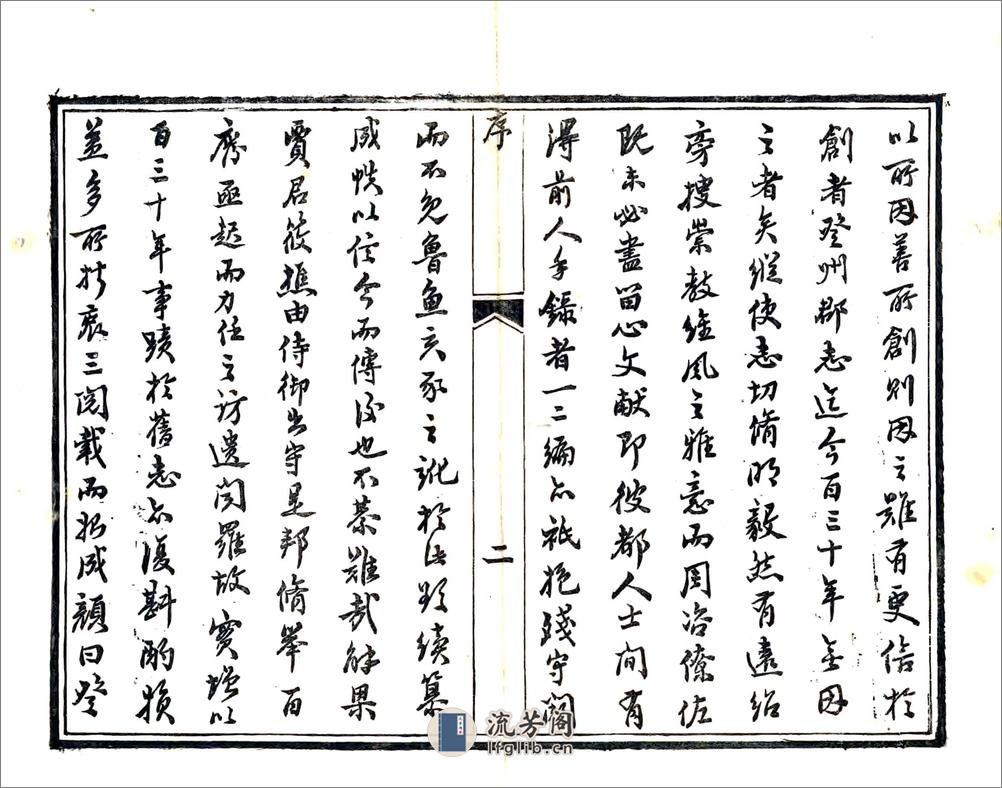 以所因善所創則因之難有更倍於
創者登州郡志迄今百三十年無因
之者矣縱使志切脩明毅然有遠紹
旁搜崇教維風之雅意而周咨僚佐
既未必盡留心文獻即彼都人士間有
得前人手錄者一二編亦祇抱殘守闕
序
二
而不免魯魚亥豕之訛於此欲續纂
成帙以信今而傳後也不綦難哉觧果
賈君筱樵由侍御出守是邦脩舉百
廢亟起而力任之訪遺聞羅故實增以
百三十年事蹟於舊志亦復斟酌損
益多所折衷三閱載而始成顏曰登
流芳阁
lfglib.cn